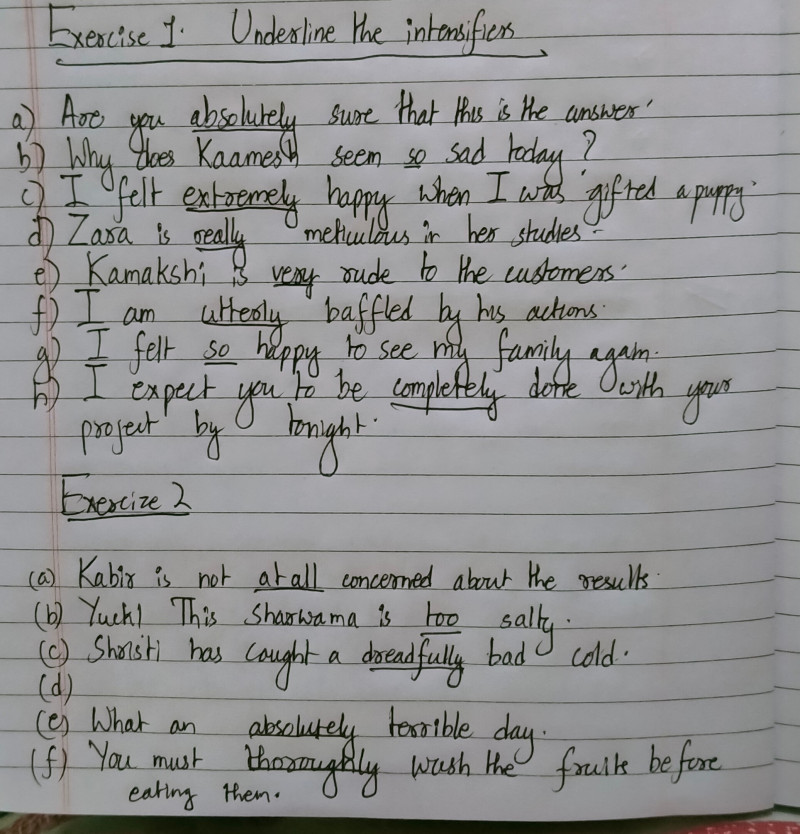 Exercise 1. Underline the intensifiers
a) Are you absolutely sure that this is the answer.
b) Why does Kaamesh seem so sad today?
c) I felt extremely happy when I was gifted a puppy.
d) Zara is really meticulous in her studies.
e) Kamakshi is very rude to the customers.
f) I am utterly baffled by his actions.
g) I felt so happy to see my family again.
h) I expect you to be completely done with your
project by tonight.
Exercize 2
(a) Kabir is not at all concerned about the results.
(b) Yuck! This Sharwama is too salty.
(c) Shristi has caught a dreadfully bad cold.
(d)
(e) What an absolutely terrible day.
(f) You must thoroughly wash the fruits before
eating them.